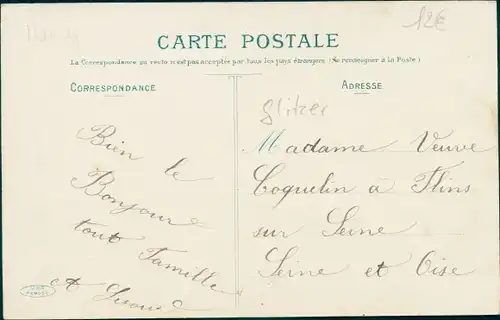 12€
CARTE POSTALE
La Correspondance au recto n'est pas acceptée par tous les pays étrangers (Se renseigner à la Poste)
CORRESPONDANCE
ADRESSE
glitzer
Bien le
Bonjour
tout Famille
A
Madame Veuve
Coquelin à Flins
sur Seine
Seine et Oise